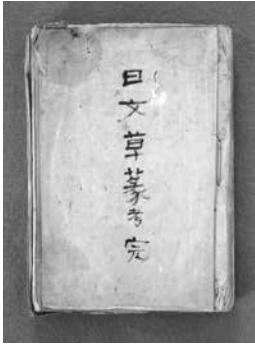 日文草篆考完